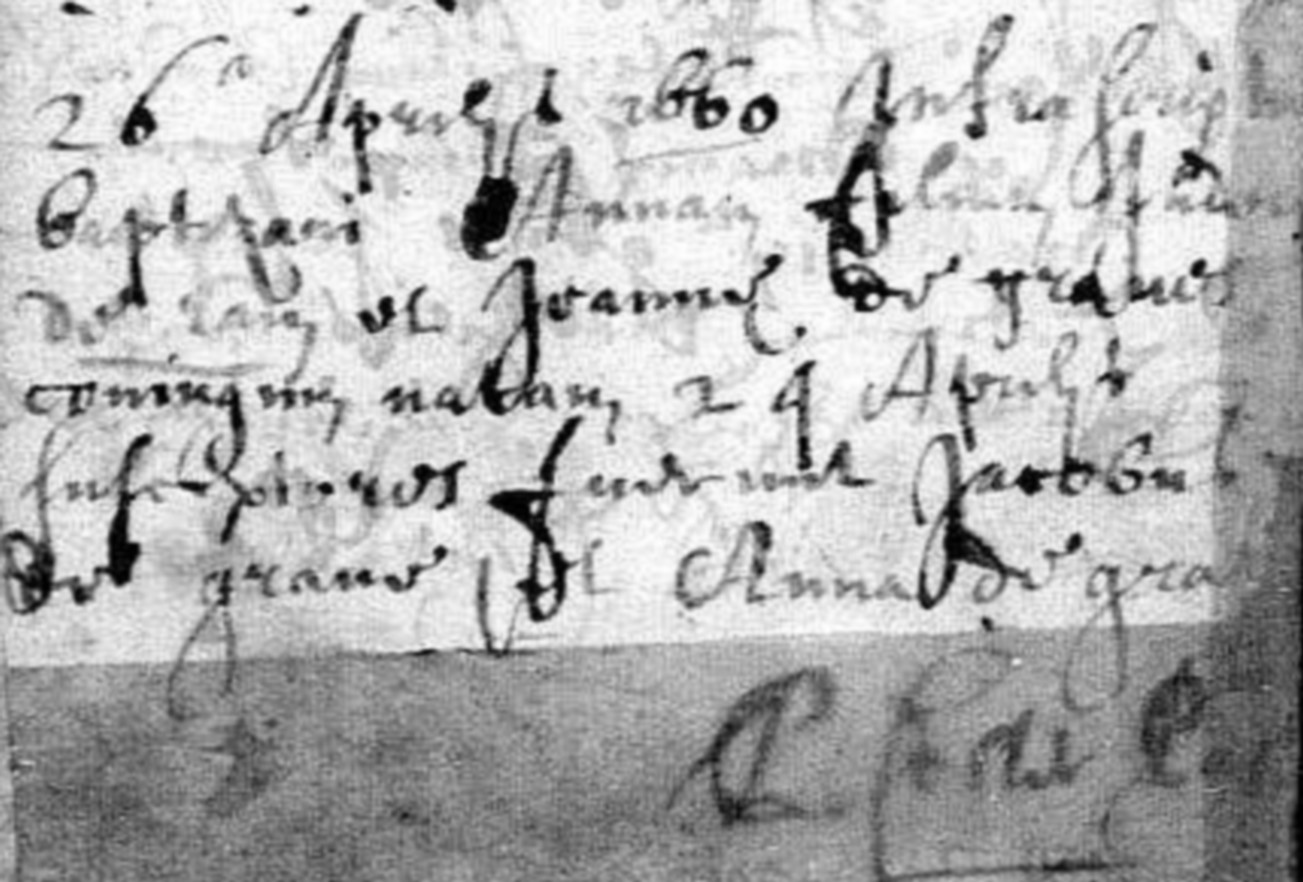 26 Aprilis 1660 Infrascrip
baptizavi Annam filiam
et Joannæ de grave
coniugum natam 24 Aprilis
Susceptores fuerunt Jacobus
de grave et Anna de gra